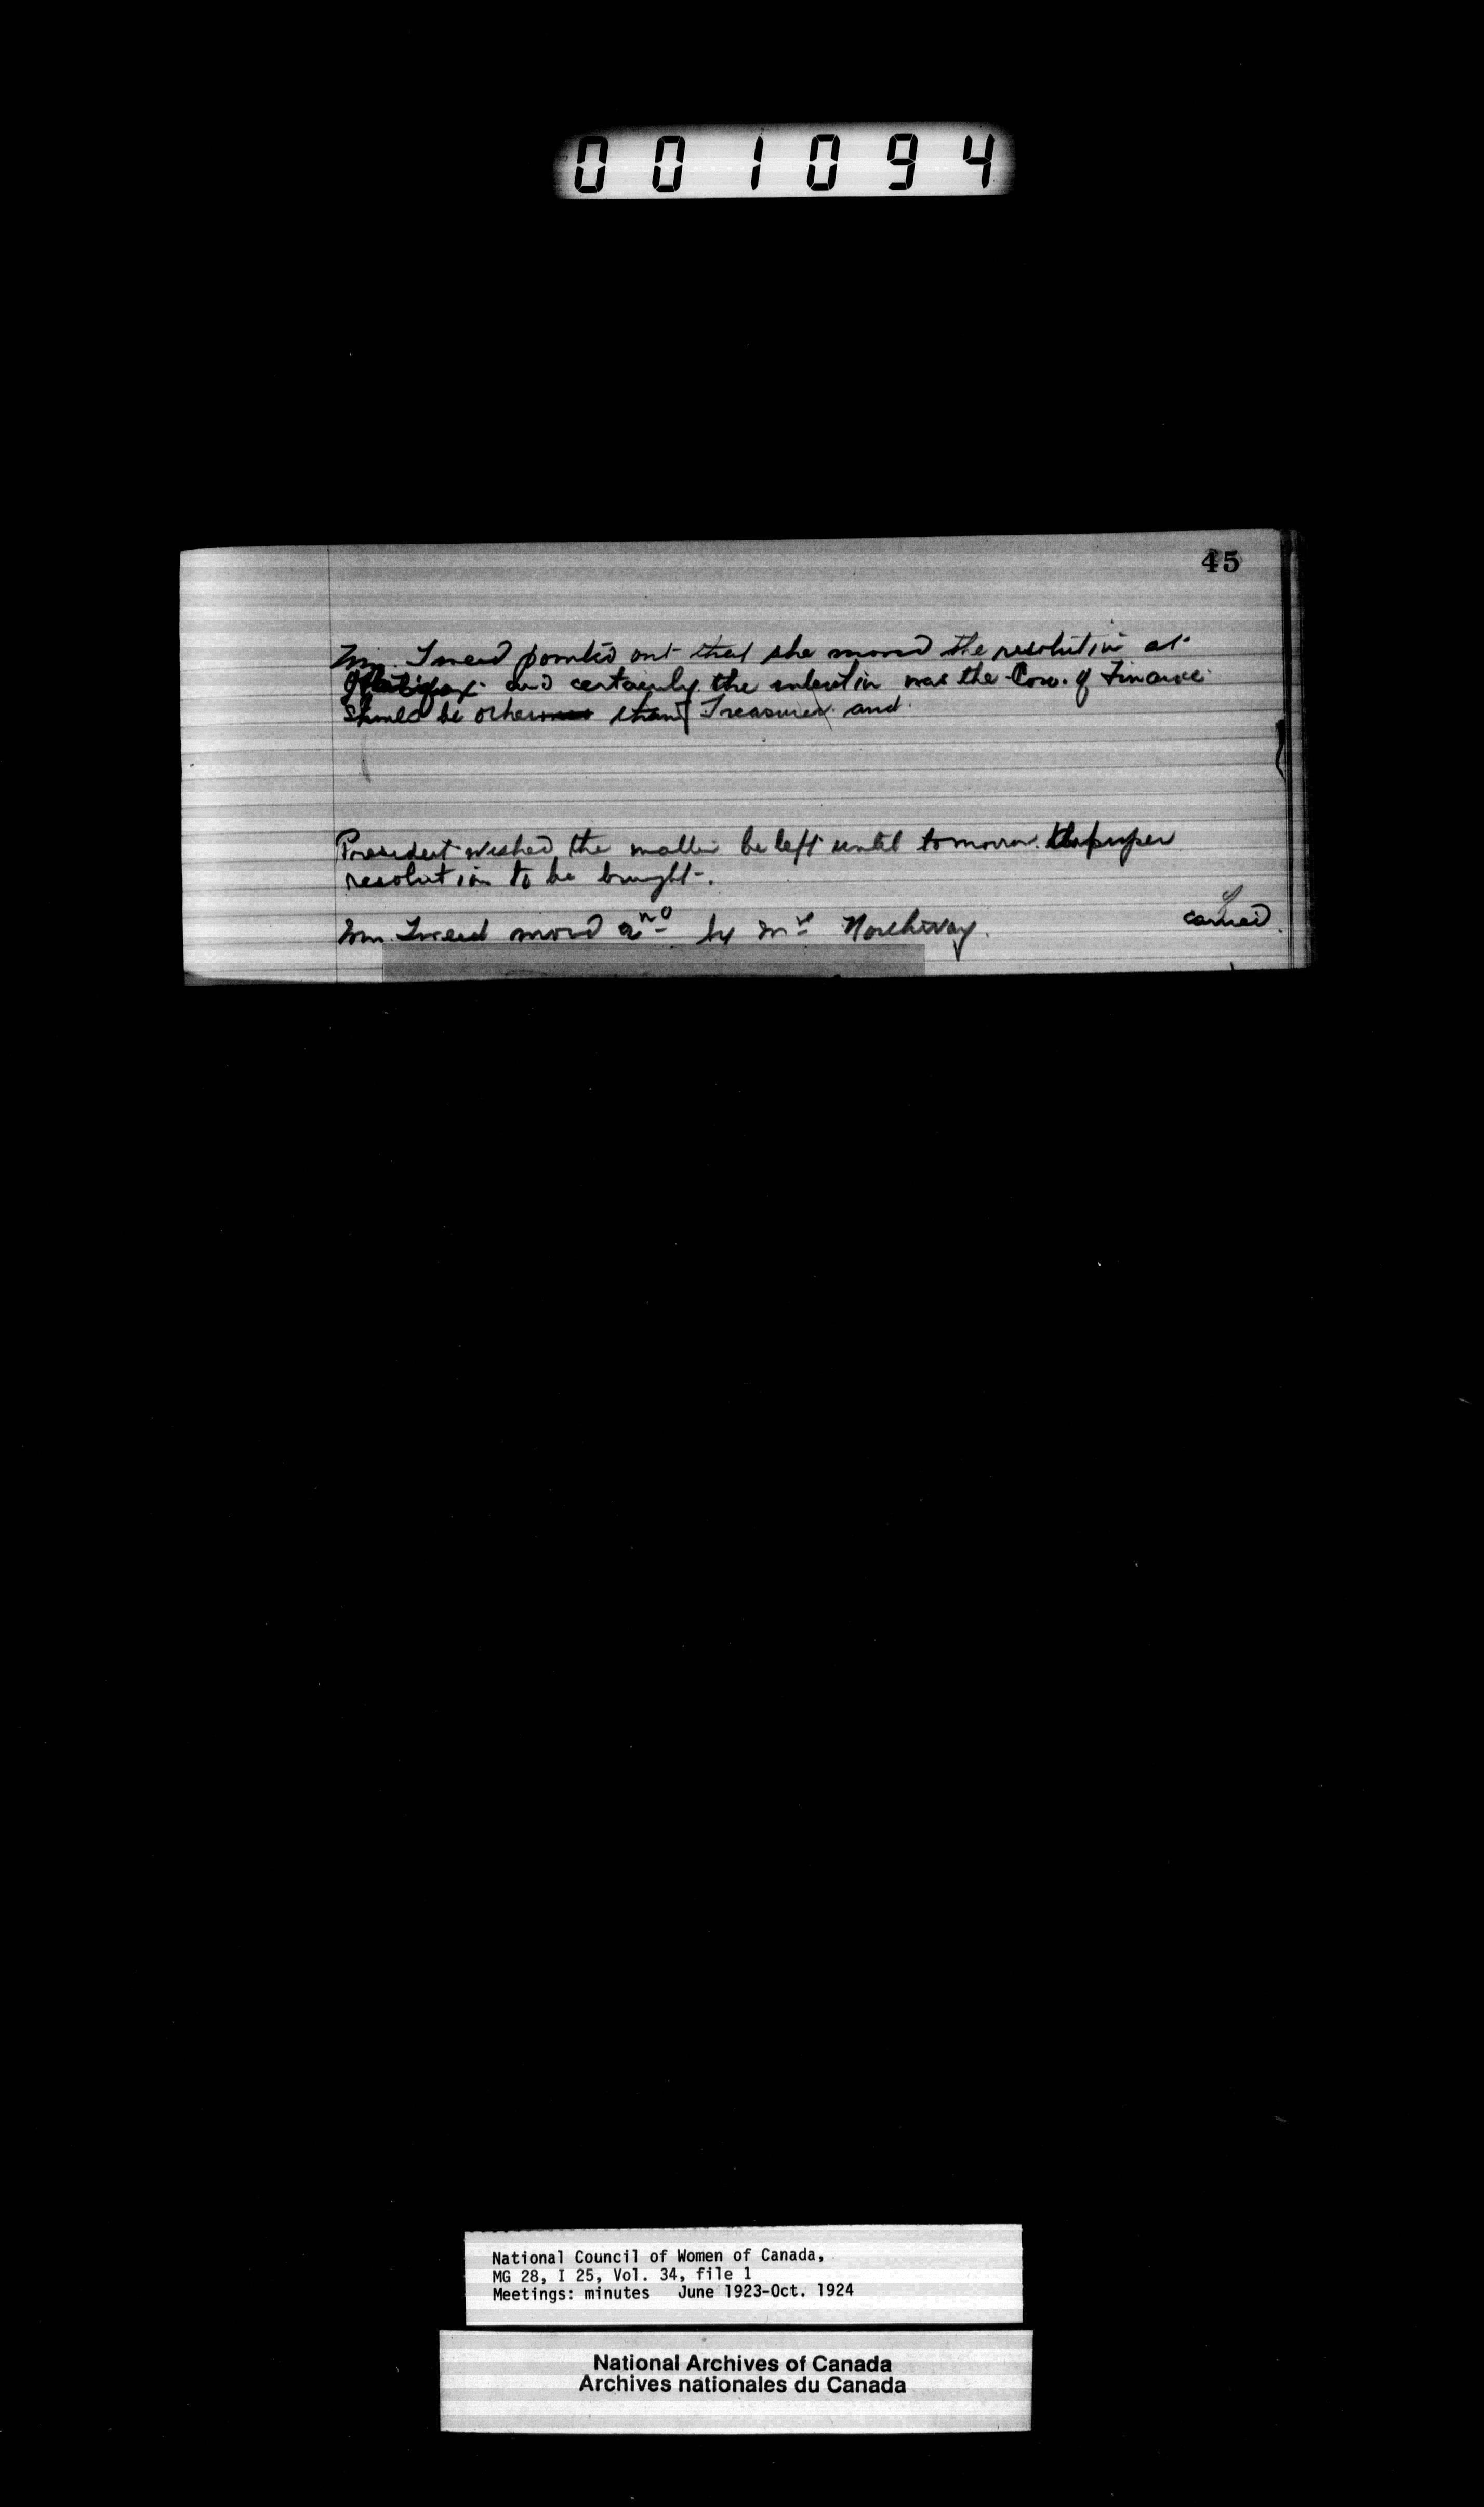 001094
45
Mrs. Tweed pointed out that she moved the resolution at
Halifax and certainly the intention was the Con. of Finance
should be other than Treasurer and
President wished the matter be left until tomorrow. proper
resolution to be brought.
Mrs. Tweed moved 2nd by Mrs
carried.
National Council of Women of Canada,
MG 28, I 25, Vol. 34, file 1
Meetings: minutes June 1923-Oct. 1924
National Archives of Canada
Archives nationales du Canada